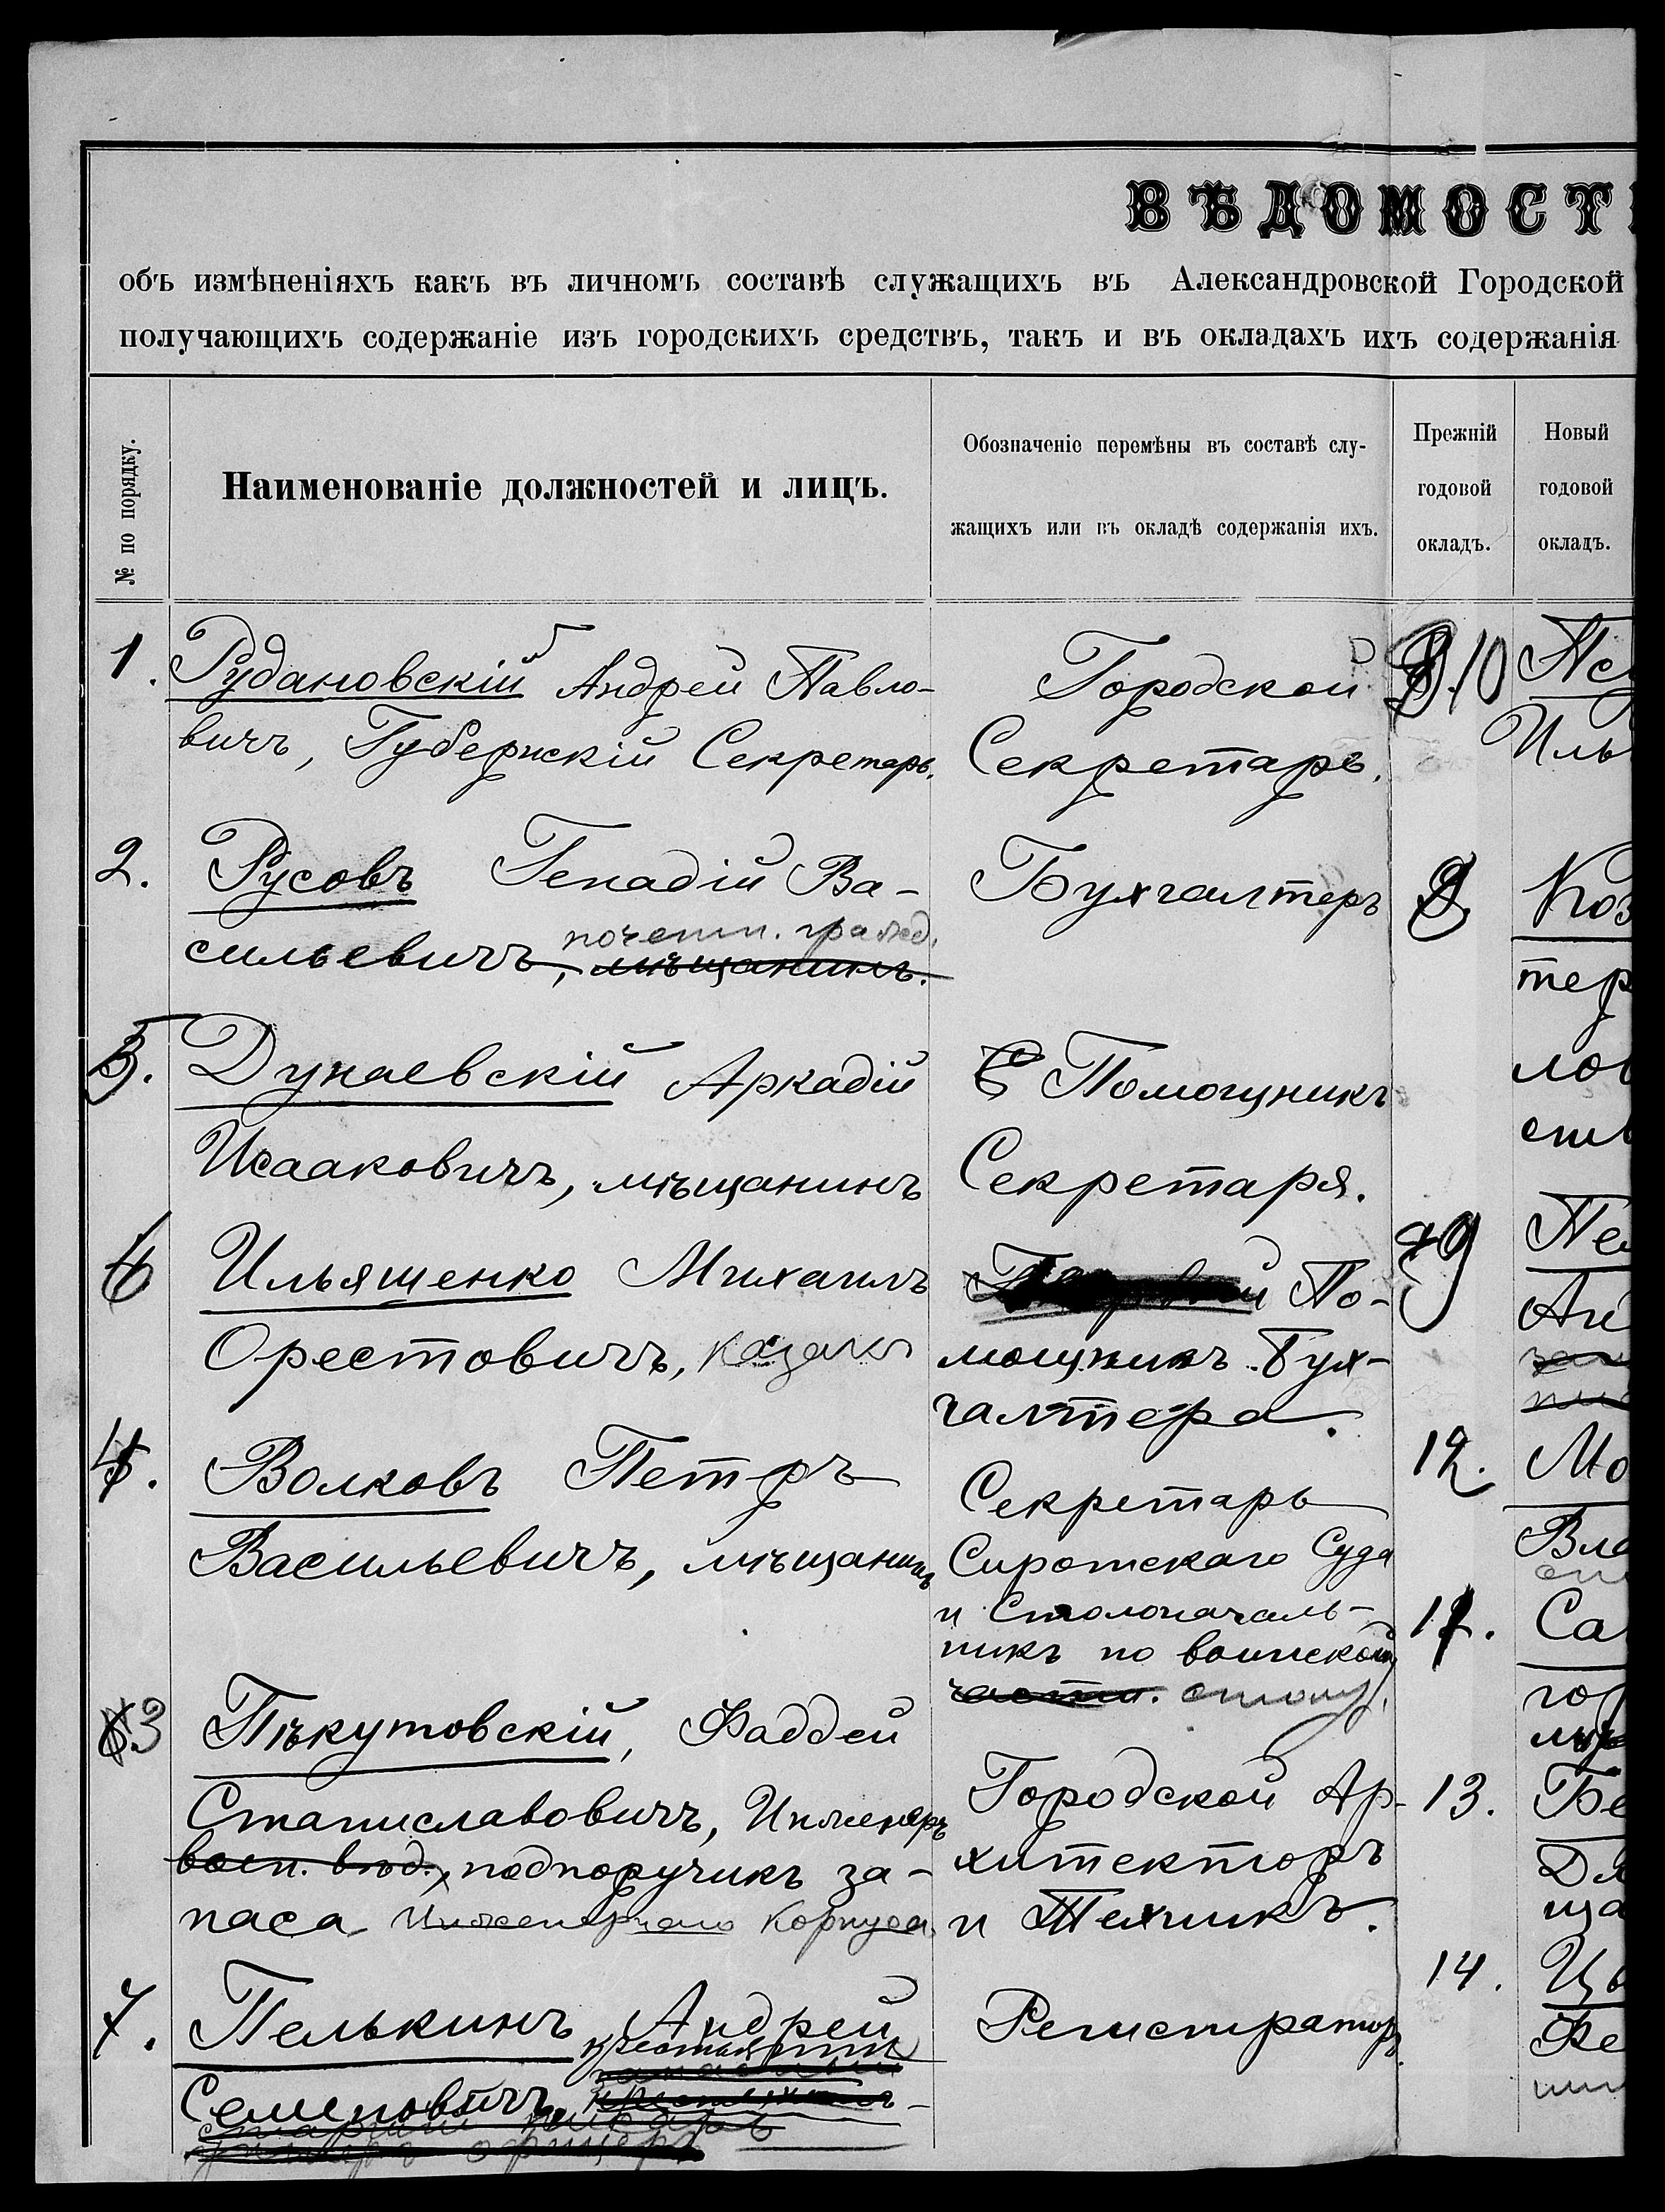 ВѢДОМОСТ
объ измѣненіяхъ какъ въ личномъ составѣ служащихъ въ Александровской Городской
получающихъ содержаніе изъ городскихъ средствъ, такъ и въ окладахъ ихъ содержанія
№ по порядку.
Наименованіе должностей и лицъ.
Обозначеніе перемѣны въ составѣ слу-
жащихъ или въ окладѣ содержанія ихъ.
Прежній
годовой
окладъ.
Новый
годовой
окладъ.
1. Рудановскій Андрей Павло-
вичъ, Губернскій Секретарь.
Городской
Секретарь.
2. Русовъ Генадій Ва-
почетн. гражд.
сильевичъ, мѣщанинъ.
Бухгалтеръ
Дунаевскій Аркадій
Исааковичъ, мѣщанинъ
Помощникъ
Секретаря.
6 Ильяшенко Михаилъ
Орестовичъ, казакъ
По-
мощникъ Бух-
галтера.
Волковъ Петръ
Васильевичъ, мѣщанинъ
Секретарь
Сиротскаго Суда
и Столоначаль-
никъ по воинской
части. столу
3 Пѣкутовскій, Фаддей
Станиславовичъ, Инженеръ
воен. вѣд., подпоручикъ за-
паса Инженернаго Корпуса
Городской Ар-
хитекторъ
и Техникъ.
7. Пелькинъ Андрей
крестьянинъ
Семеновичъ,
старшій писарь
унтеръ офицеръ
Регистраторъ.
10
Иль
8
Коз
тер
9
12.
Мо
Вла
Са
гор
13.
Бе
ща
14.
Фе